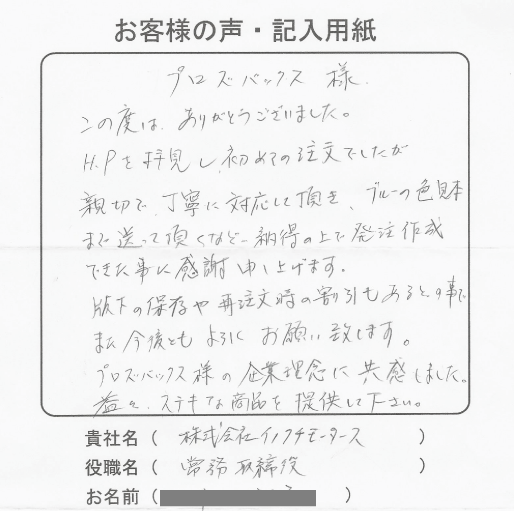 お客様の声・記入用紙
プロズバックス 様
この度は、ありがとうございました。
H.Pを拝見し、初めての注文でしたが
親切で、丁寧に対応して頂き、ブルーの色見本
まで送って頂くなど、納得の上で発注作成
できた事に感謝申し上げます。
版下の保存や再注文時の割引もあるとの事で
また今後ともよろしくお願い致します。
プロズバックス様の企業理念に共感しました。
益々、ステキな商品を提供して下さい。
貴社名（ 株式会社イノクチモータース ）
役職名（ 常務取締役 ）
お名前（ ）